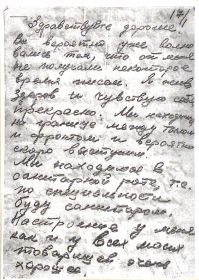 17/I
Здравствуйте дорогие
Вы вероятно уже волно
вались тем, что от меня
не получали некоторое
время писем. Я жив
здоров и чувствую себя
прекрасно. Мы находимся
на границе между тылом
и фронтом и вероятно
скоро выступим.
Мы находимся в
санитарной роте, т.е.
по специальности
буду санитаром.
Настроение у меня
как и у всех моих
товарищей очень
хорошее.